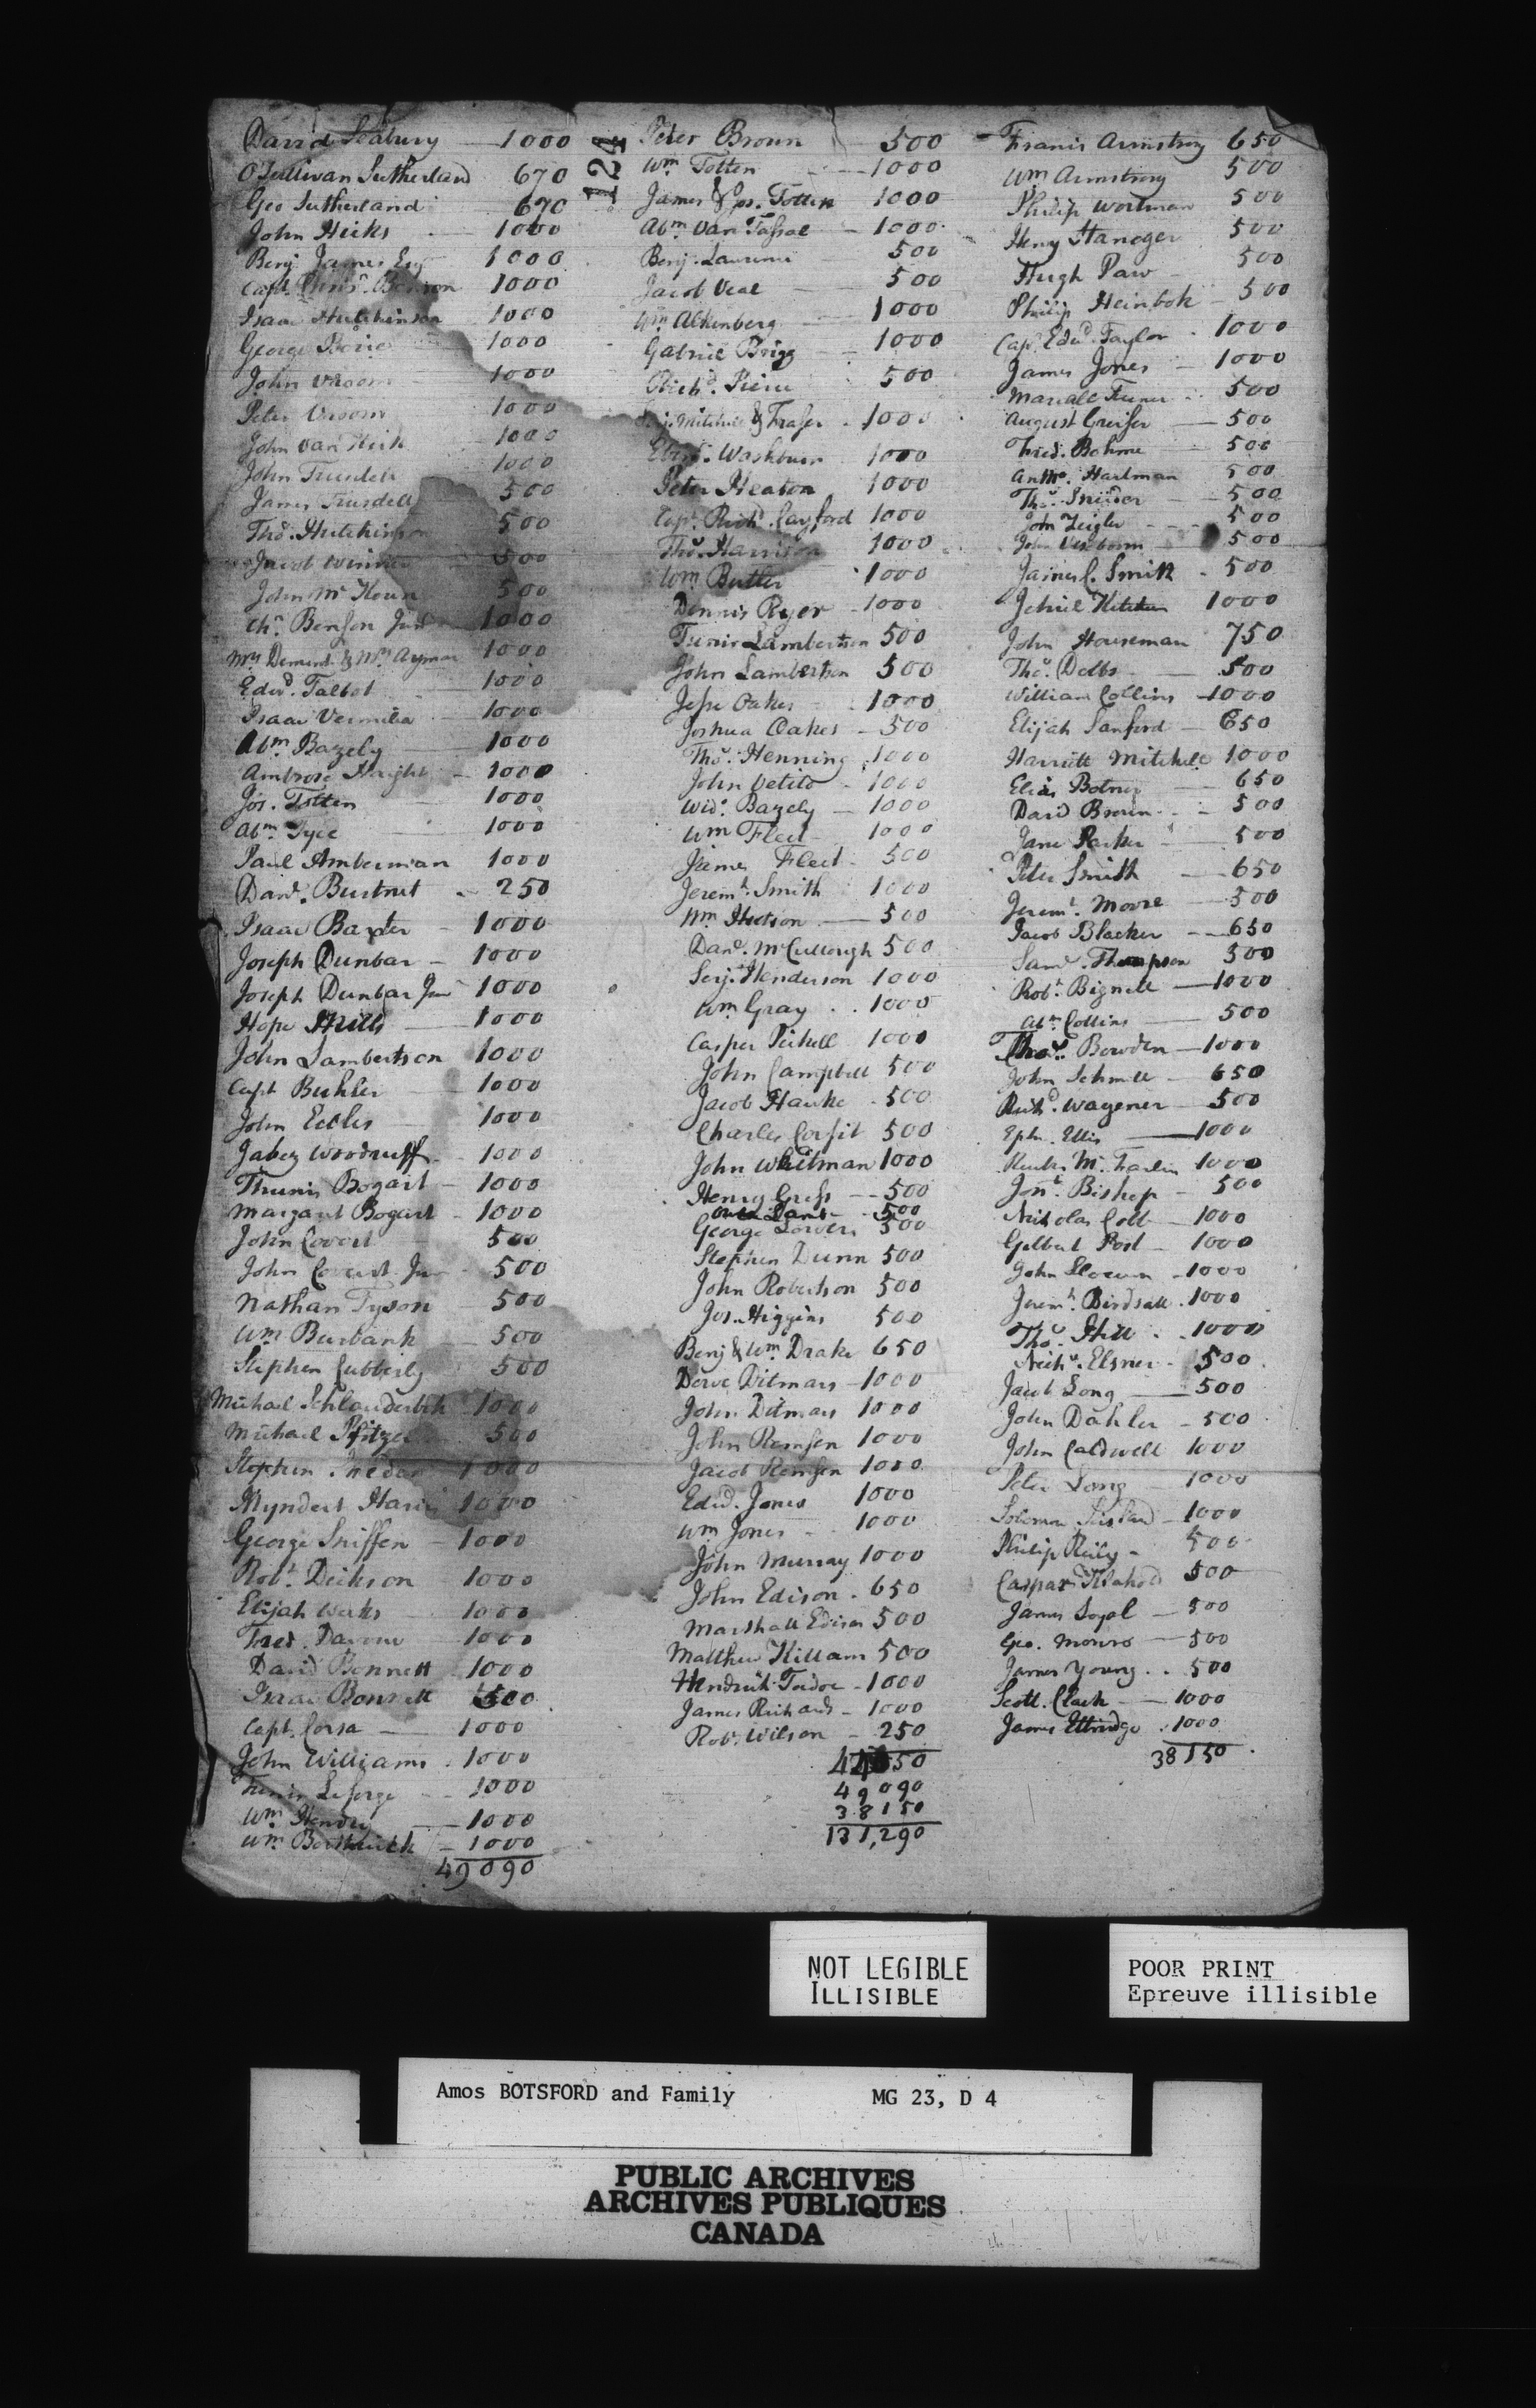 David Seabury 1000
O'Sullivan Sutherland 670
Geo Sutherland 670
John Hicks 1000
Benj James Esqr 1000
Capt. Benson 1000
Isaac Hutchinson 1000
George 1000
John Vroom 1000
Peter Vroom 1000
John Van 1000
John Trusdell 1000
James Trusdell 500
Thos. Hutchinson 500
Jacob 500
John McKoun 500
Chr. Benson Junr 1000
Mrs Dement & Mrs Aymar 1000
Edwd. Talbot 1000
Isaac Vermilia 1000
Abm Bazely 1000
Ambrose Haight 1000
Jos. Totten 1000
Abm Tyee 1000
Paul Amberman 1000
Danl. Burtnet 250
Isaac Baxter 1000
Joseph Dunbar 1000
Joseph Dunbar Junr 1000
Hope Mills 1000
John Lambertson 1000
Capt Buhler 1000
John Eccles 1000
Jabez Woodruff 1000
Theunis Bogart 1000
Margaret Bogart 1000
John Covert 500
John Covert Junr 500
Nathan Tyson 500
Wm Burbank 500
Stephen Cubberly 500
Michael Schlauderbek 1000
Michael Pfitzer 500
Stephen 1000
Myndert Haris 1000
George Sniffen 1000
Robt. Dickson 1000
Elijah Weeks 1000
Fred. Davour 1000
David Bonnett 1000
Isaac Bonnett 500
Capt. Corsa 1000
John Williams 1000
Lesorge 1000
Wm Hendry 1000
Wm Bostwick 1000
49090
124
Peter Broun 500
Wm Totten 1000
James & Jos. Totten 1000
Abm Van Tassal 1000
Benj. Lawrence 500
Jacob Veal 500
Wm Alkenberg 1000
Gabriel Brigg 1000
Richd. 500
Mitchie & Fraser 1000
Ebenr. Washburn 1000
Peter Heaton 1000
Capt. Richd. Cayford 1000
Thos. Harrison 1000
Wm Butler 1000
Dennis Ryer 1000
Tunis Lambertson 500
John Lambertson 500
Jesse Oakes 1000
Joshua Oakes 500
Thos. Henning 1000
John Vetito 1000
Wido. Bazely 1000
Wm Fleet 1000
James Fleet 500
Jeremh. Smith 1000
Wm Hutson 500
Danl. McCullough 500
Serj. Henderson 1000
Wm Gray 1000
Casper Pickell 1000
John Campbell 500
Jacob Hauke 500
Charles Corfit 500
John Whitman 1000
Henry Gress 500
500
George Sowers 500
Stephen Dunn 500
John Robertson 500
Jos. Higgins 500
Benj & Wm Drake 650
Dowe Ditmars 1000
John Ditmars 1000
John Remsen 1000
Jacob Remsen 1000
Edwd. Jones 1000
Wm Jones 1000
John Murray 1000
John Edison 650
Marshall Edison 500
Matthew Killam 500
Hendrick 1000
James Richards 1000
Robt. Wilson 250
44050
49090
38150
131,290
Francis Armstrong 650
Wm Armstrong 500
Philip Wortman 500
Henry Haneger 500
Hugh Paw 500
Philip Heinbok 500
Capt. Edwd. Taylor 1000
James Jones 1000
Turner 500
August Greifer 500
Fred. Bohme 500
Anth. Hartman 500
Thos. Snider 500
John Zeigler 500
John 500
James C. Smith 500
Jehiel 1000
John Houseman 750
Thos. Dobbs 500
William Collins 1000
Elijah Sanford 650
Harriott Mitchell 1000
Elias Botner 650
David Broun 500
Jane Parker 500
Peter Smith 650
Jeremh. Moore 500
Jacob Blacker 650
Saml. Thompson 500
Robt. Bignell 1000
Abm Collins 500
Thos. Bowden 1000
John Schmell 650
Richd. Wagener 500
Eph. Ellis 1000
Mc. Farlin 1000
Jont. Bishop 500
Nicholas Cobb 1000
Gilbert Post 1000
John Slocum 1000
Jeremh. Birdsall 1000
Thos. Hill 1000
Nichs. Elsner 500
Jacob Long 500
John Dahler 500
John Caldwell 1000
Peter Long 1000
Solomon 1000
Philip Reily 500
Caspar 500
James Soyal 500
Geo. Monro 500
James Young 500
Scott. Clark 1000
James Ettridge 1000
38150
NOT LEGIBLE
ILLISIBLE
POOR PRINT
Epreuve illisible
Amos BOTSFORD and Family MG 23, D 4
PUBLIC ARCHIVES
ARCHIVES PUBLIQUES
CANADA